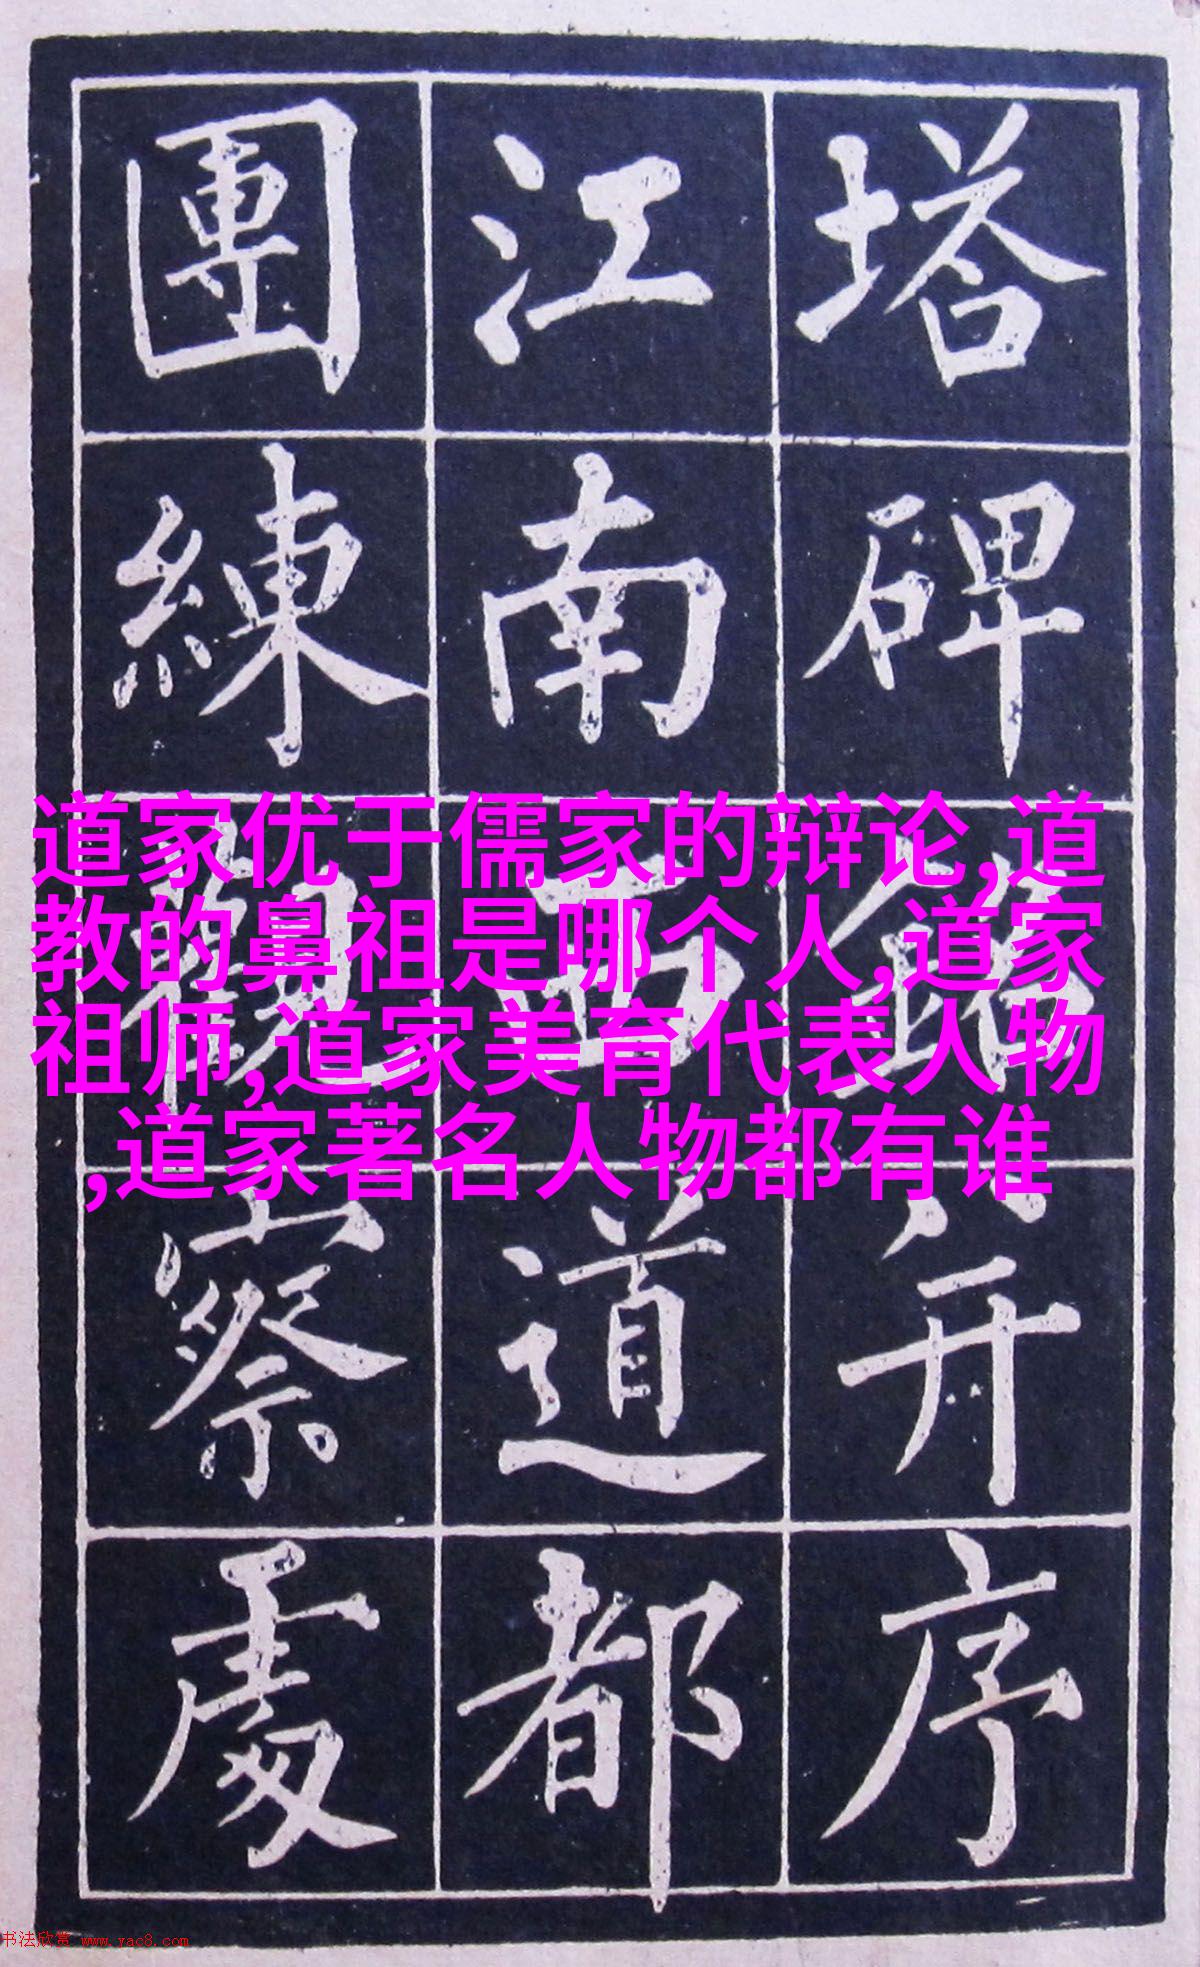 塔碑銘并序
江南西道都
團練觀察處
道家优于儒家的辩论,道
教的鼻祖是哪个人,道家
祖师,道家美育代表人物
,道家著名人物都有谁
书法欣赏 www.yac8.com